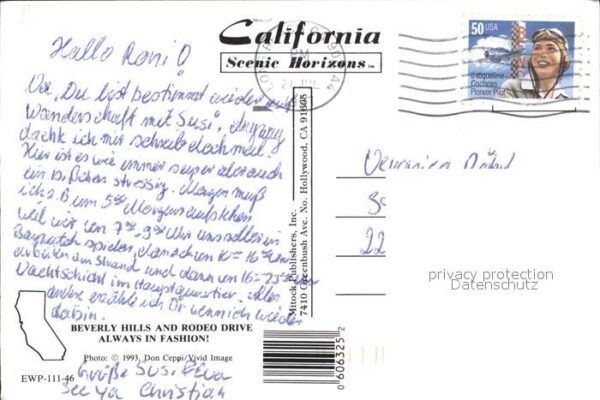 California
Scenic Horizons™
50 USA
Jacqueline
Cochran
Pioneer Pilot
Hallo Roni
Du bist bestimmt wieder auf
Wanderschaft mit Susi,
dacht ich mir schreib doch mal.
Hier ist es wie immer super aber auch
ein bißchen stressig. Morgen muß
ich z.B um 5 Morgens aufstehen
weil wir um 7 Uhr uns selber in
Baywatch spielen, danach um
arbeiten am Strand und dann um
Nachtschicht im Hauptquartier. Alles
andere erzähle ich Dir wenn ich wieder
da bin.
Mitock Publishers, Inc.
7410 Greenbush Ave. No. Hollywood, CA 91605
22
privacy protection
Datenschutz
BEVERLY HILLS AND RODEO DRIVE
ALWAYS IN FASHION!
Photo: © 1993, Don Ceppi/Vivid Image
EWP-111-46
Grüße Susi
See Ya Christian
0 606325 2